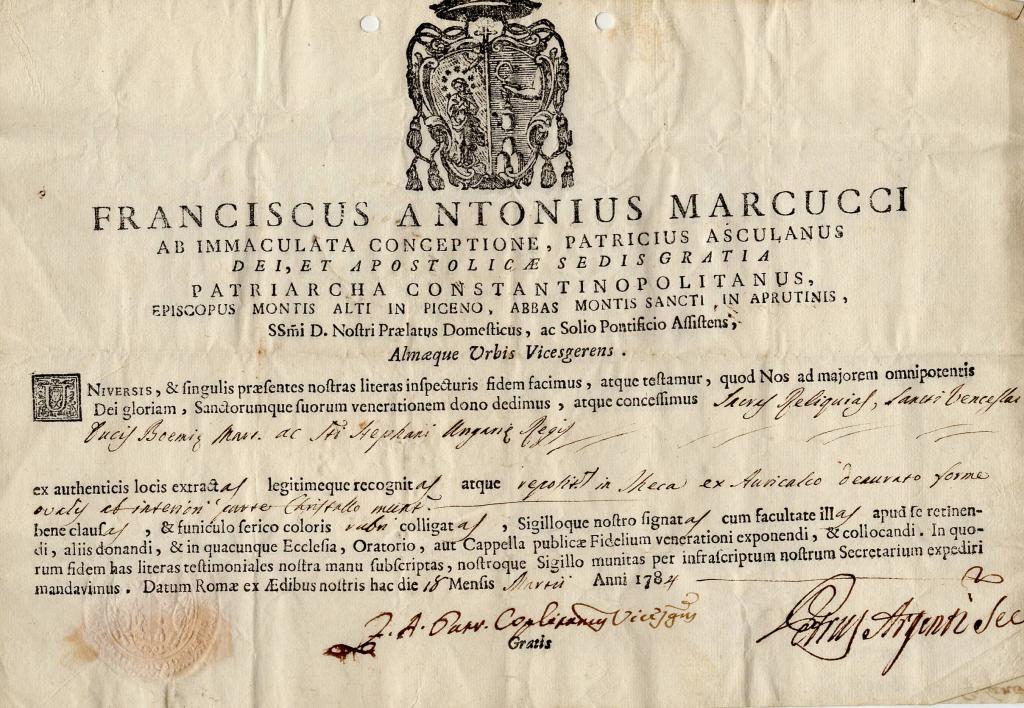 FRANCISCUS ANTONIUS MARCUCCI
AB IMMACULATA CONCEPTIONE, PATRICIUS ASCULANUS
DEI, ET APOSTOLICÆ SEDIS GRATIA
PATRIARCHA CONSTANTINOPOLITANUS,
EPISCOPUS MONTIS ALTI IN PICENO, ABBAS MONTIS SANCTI IN APRUTINIS,
SSm̃i D. Noſtri Prælatus Domeſticus, ac Solio Pontificio Aſſiſtens,
Almæque Urbis Vicesgerens.
UNIVERSIS, & ſingulis præſentes noſtras literas inſpecturis fidem facimus, atque teſtamur, quod Nos ad majorem omnipotentis
Dei gloriam, Sanctorumque ſuorum venerationem dono dedimus, atque conceſſimus Sacras Reliquias, Sancti Venceslai
Ducis Boemię Mart. ac Sti Stephani Ungarię Regis
ex authenticis locis extractas legitimeque recognitas atque reposit in theca ex Auricalco deaurato forme
ovalis ab interiori parte Christallo munit.
bene clauſas, & funiculo ſerico coloris rubri colligatas, Sigilloque noſtro ſignatas cum facultate illas apud ſe retinen-
di, aliis donandi, & in quacunque Eccleſia, Oratorio, aut Cappella publicæ Fidelium venerationi exponendi, & collocandi. In quo-
rum fidem has literas teſtimoniales noſtra manu ſubſcriptas, noſtroque Sigillo munitas per infraſcriptum noſtrum Secretarium expediri
mandavimus. Datum Romæ ex Ædibus noſtris hac die 18 Menſis Martii Anni 1784
F. A. Patr. Coplitanus Vicesgns
Petrus Argenti Sec
Gratis